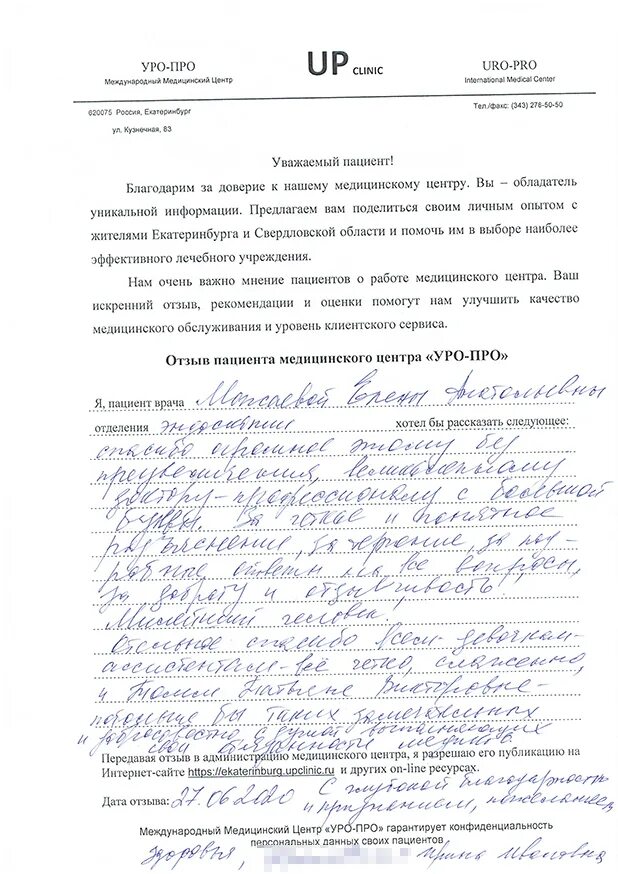 УРО-ПРО
Международный Медицинский Центр
UP CLINIC
URO-PRO
International Medical Center
620075 Россия, Екатеринбург
ул. Кузнечная, 83
Тел./факс: (343) 276-50-50
Уважаемый пациент!
Благодарим за доверие к нашему медицинскому центру. Вы – обладатель
уникальной информации. Предлагаем вам поделиться своим личным опытом с
жителями Екатеринбурга и Свердловской области и помочь им в выборе наиболее
эффективного лечебного учреждения.
Нам очень важно мнение пациентов о работе медицинского центра. Ваш
искренний отзыв, рекомендации и оценки помогут нам улучшить качество
медицинского обслуживания и уровень клиентского сервиса.
Отзыв пациента медицинского центра «УРО-ПРО»
Я, пациент врача Можаевой Елены Анатольевны
отделения эндоскопии хотел бы рассказать следующее:
спасибо огромное этому без
преувеличения, великолепному
доктору-профессионалу с большой
буквы. За четкое и понятное
разъяснение, за терпение, за
ответы на все вопросы,
за доброту и отзывчивость!
Милейший человек.
Отдельное спасибо всем девочкам-
ассистентам - всё четко, слаженно,
и Татьяне Викторовне -
побольше бы таких замечательных
и добросовестно с душой выполняющих
свои обязанности
Передавая отзыв в администрацию медицинского центра, я разрешаю его публикацию на
Интернет-сайте https://ekaterinburg.upclinic.ru и других on-line ресурсах.
Дата отзыва: 27.06.2020 С глубокой благодарностью
и признанием, пожеланием
Международный Медицинский Центр «УРО-ПРО» гарантирует конфиденциальность
персональных данных своих пациентов
здоровья, Ирина Ивановна